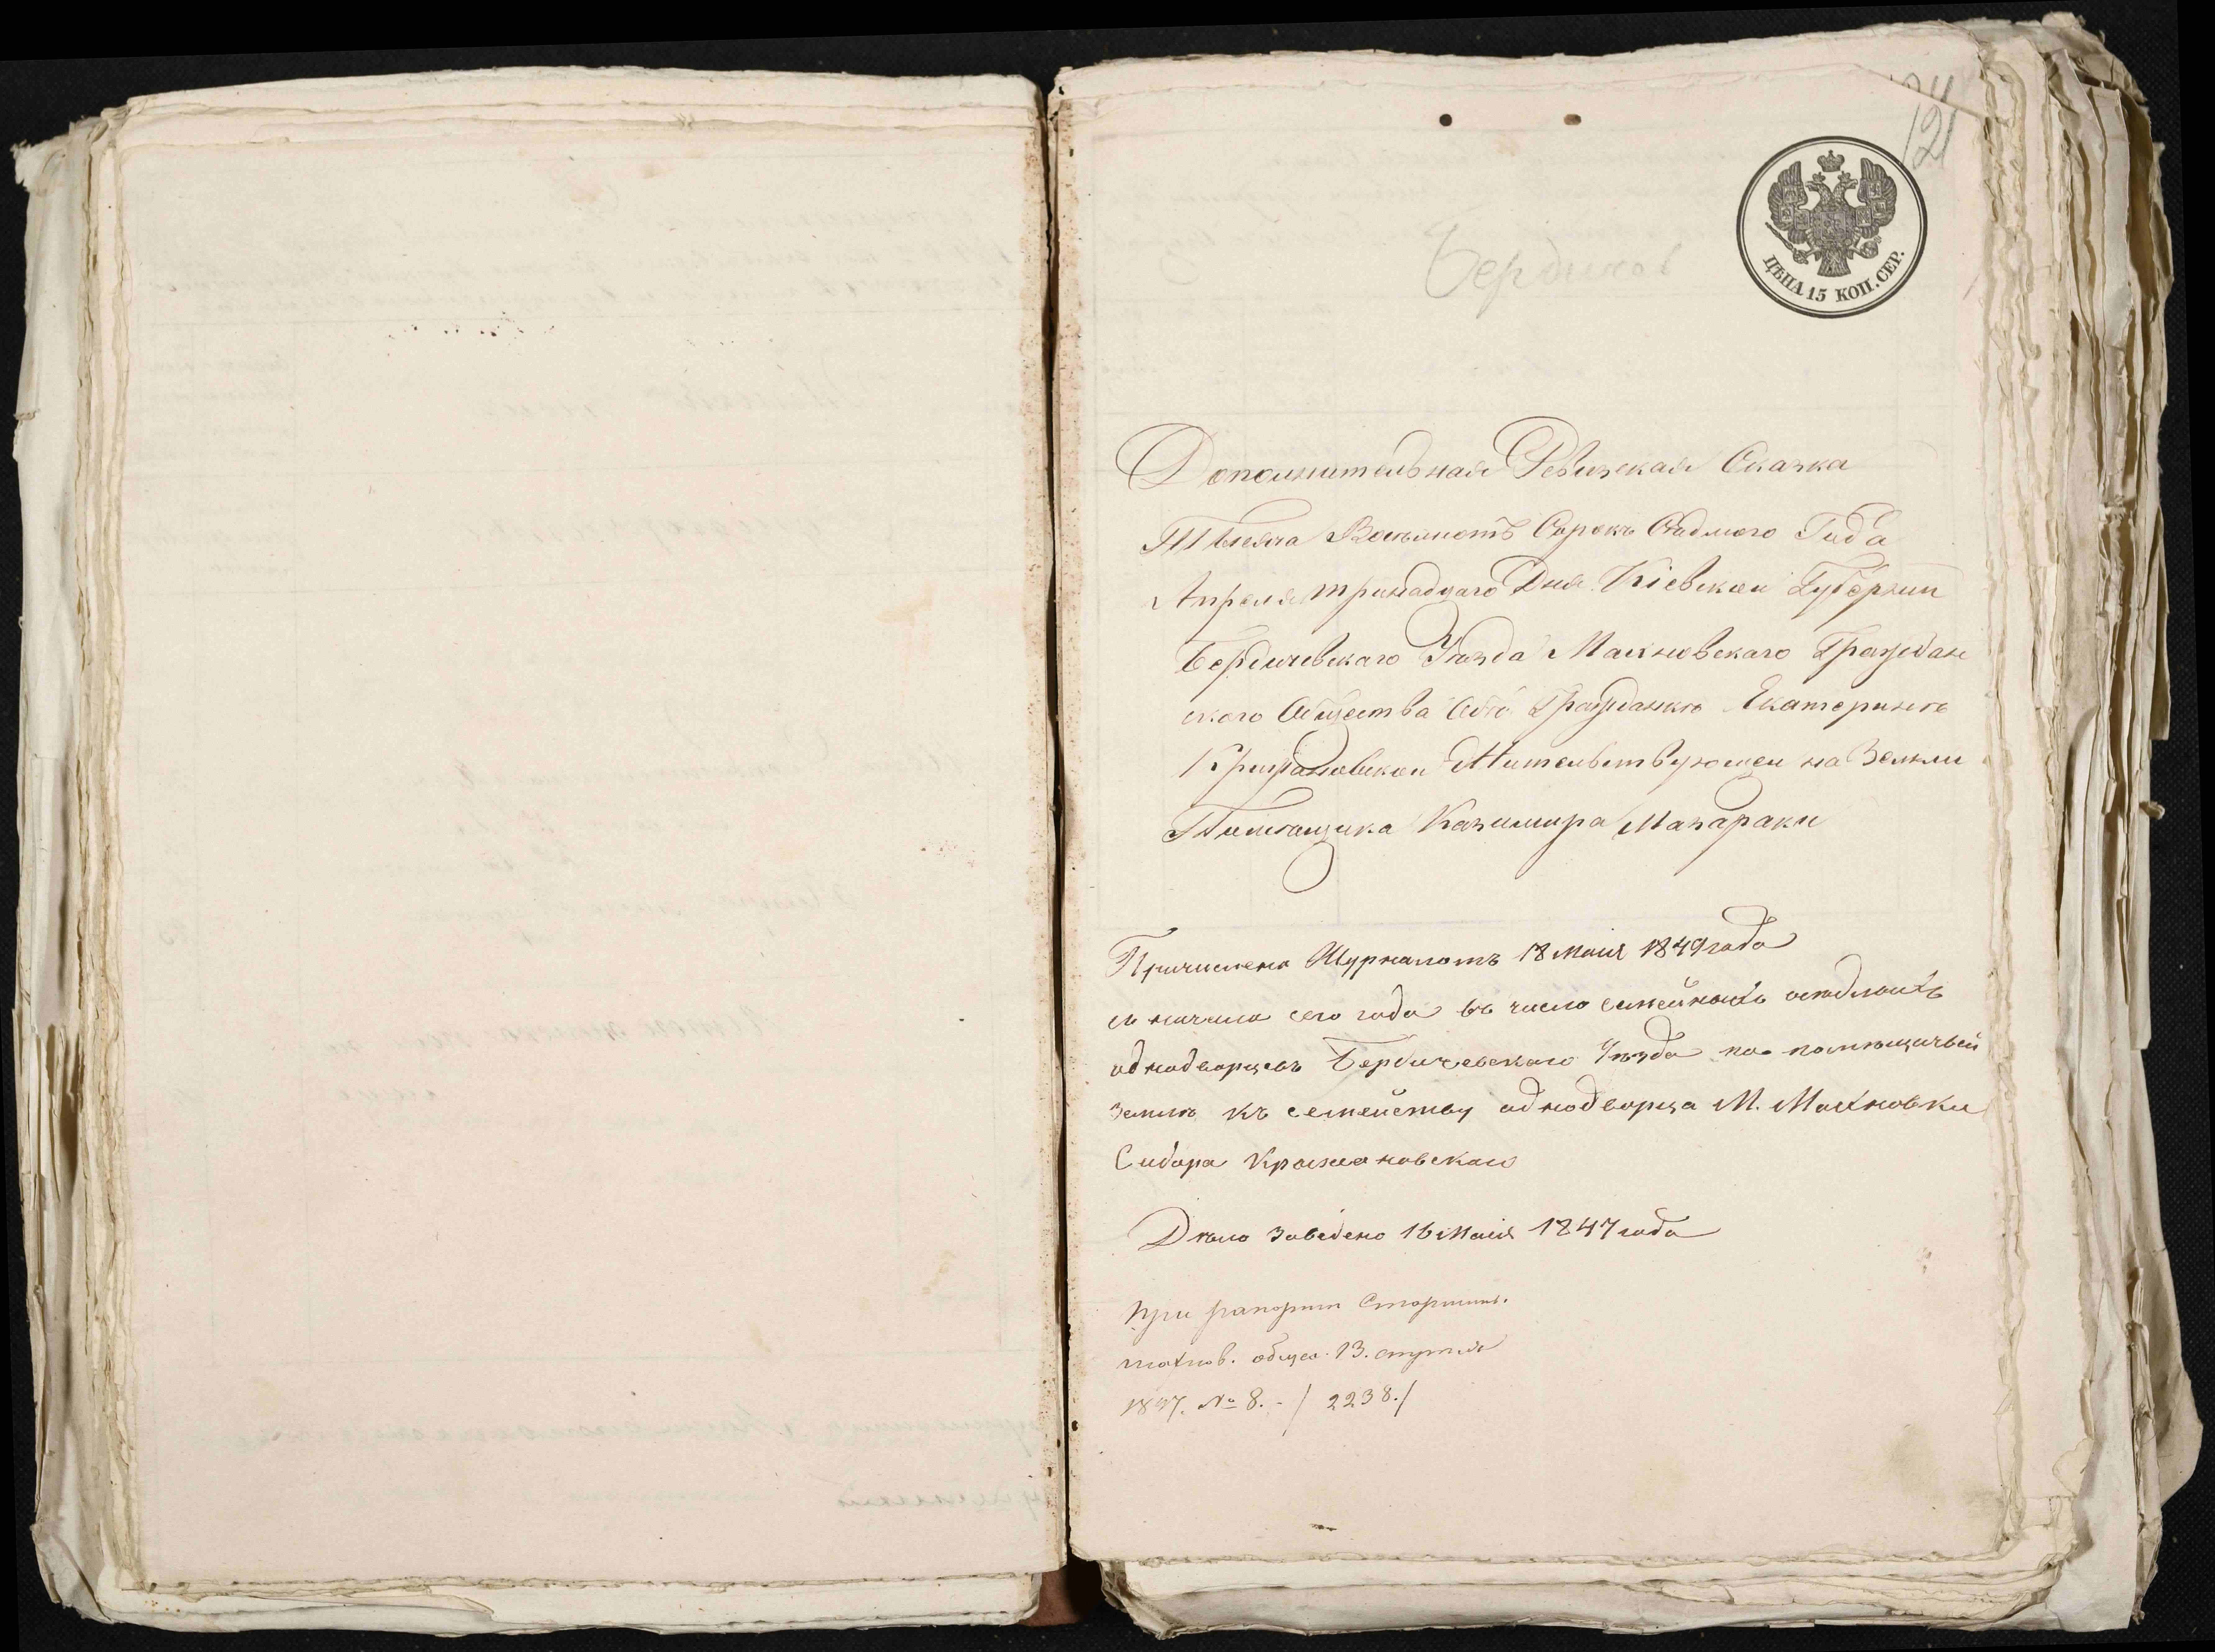 121
Бердичев
ЦѢНА 15 КОП. СЕР.
Дополнительная Ревизская Сказка
Тысяча Восемьсотъ Сорокъ Седмого Года
Апреля тринадцаго Дня Кіевской Губерніи
Бердичевскаго Уѣзда Махновскаго Граждан
ского Общества Объ Гражданкѣ Екатеринѣ
Крижановской Жительствующей на Земли
Помѣщика Казимира Мазараки
Причислена Журналомъ 18 Маія 1849 года
съ начала сего года въ число семейныхъ осѣдлыхъ
однодворцевъ Бердичевскаго Уѣзда на помѣщичьей
землѣ къ семейству однодворца М. Махновки
Сидора Крыжановскаго
Дѣло заведено 16 Маія 1847 года
При рапортѣ Старшин.
махнов. общес. 13. апреля
1847. № 8. - / 2238. /